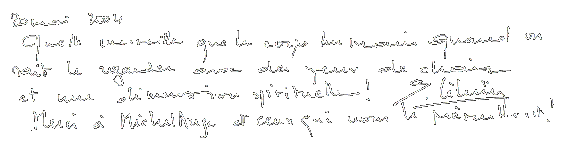 20 mai 2004
Quelle merveille que le corps humain quand on
sait le regarder avec des yeux de
et une dimension spirituelle!
Merci à Michel Ange et ceux qui nous le présentent!